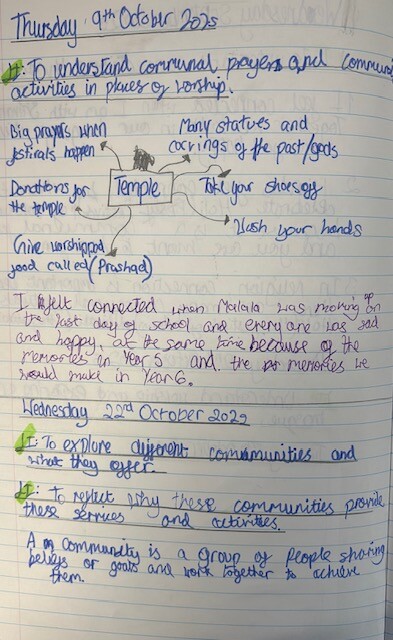 Thursday 9th October 2025
LI: To understand communal prayers and commun
activities in places of worship.
Big prayers when
festivals happen
Many statues and
carvings of the past/gods
Donations for
the temple
Temple
Take your shoes off
Wash your hands
Give worshipped
food called (Prashad)
I felt connected when Malala was moving up on
the last day of school and everyone was sad
and happy, at the same time because of the
memories in Year 5 and the memories we
would make in Year 6.
Wednesday 22nd October 2025
LI: To explore different communities and
what they offer.
LI: To reflect why these communities provide
these services and activities.
A community is a group of people sharing
beliefs or goals and work together to achieve
them.